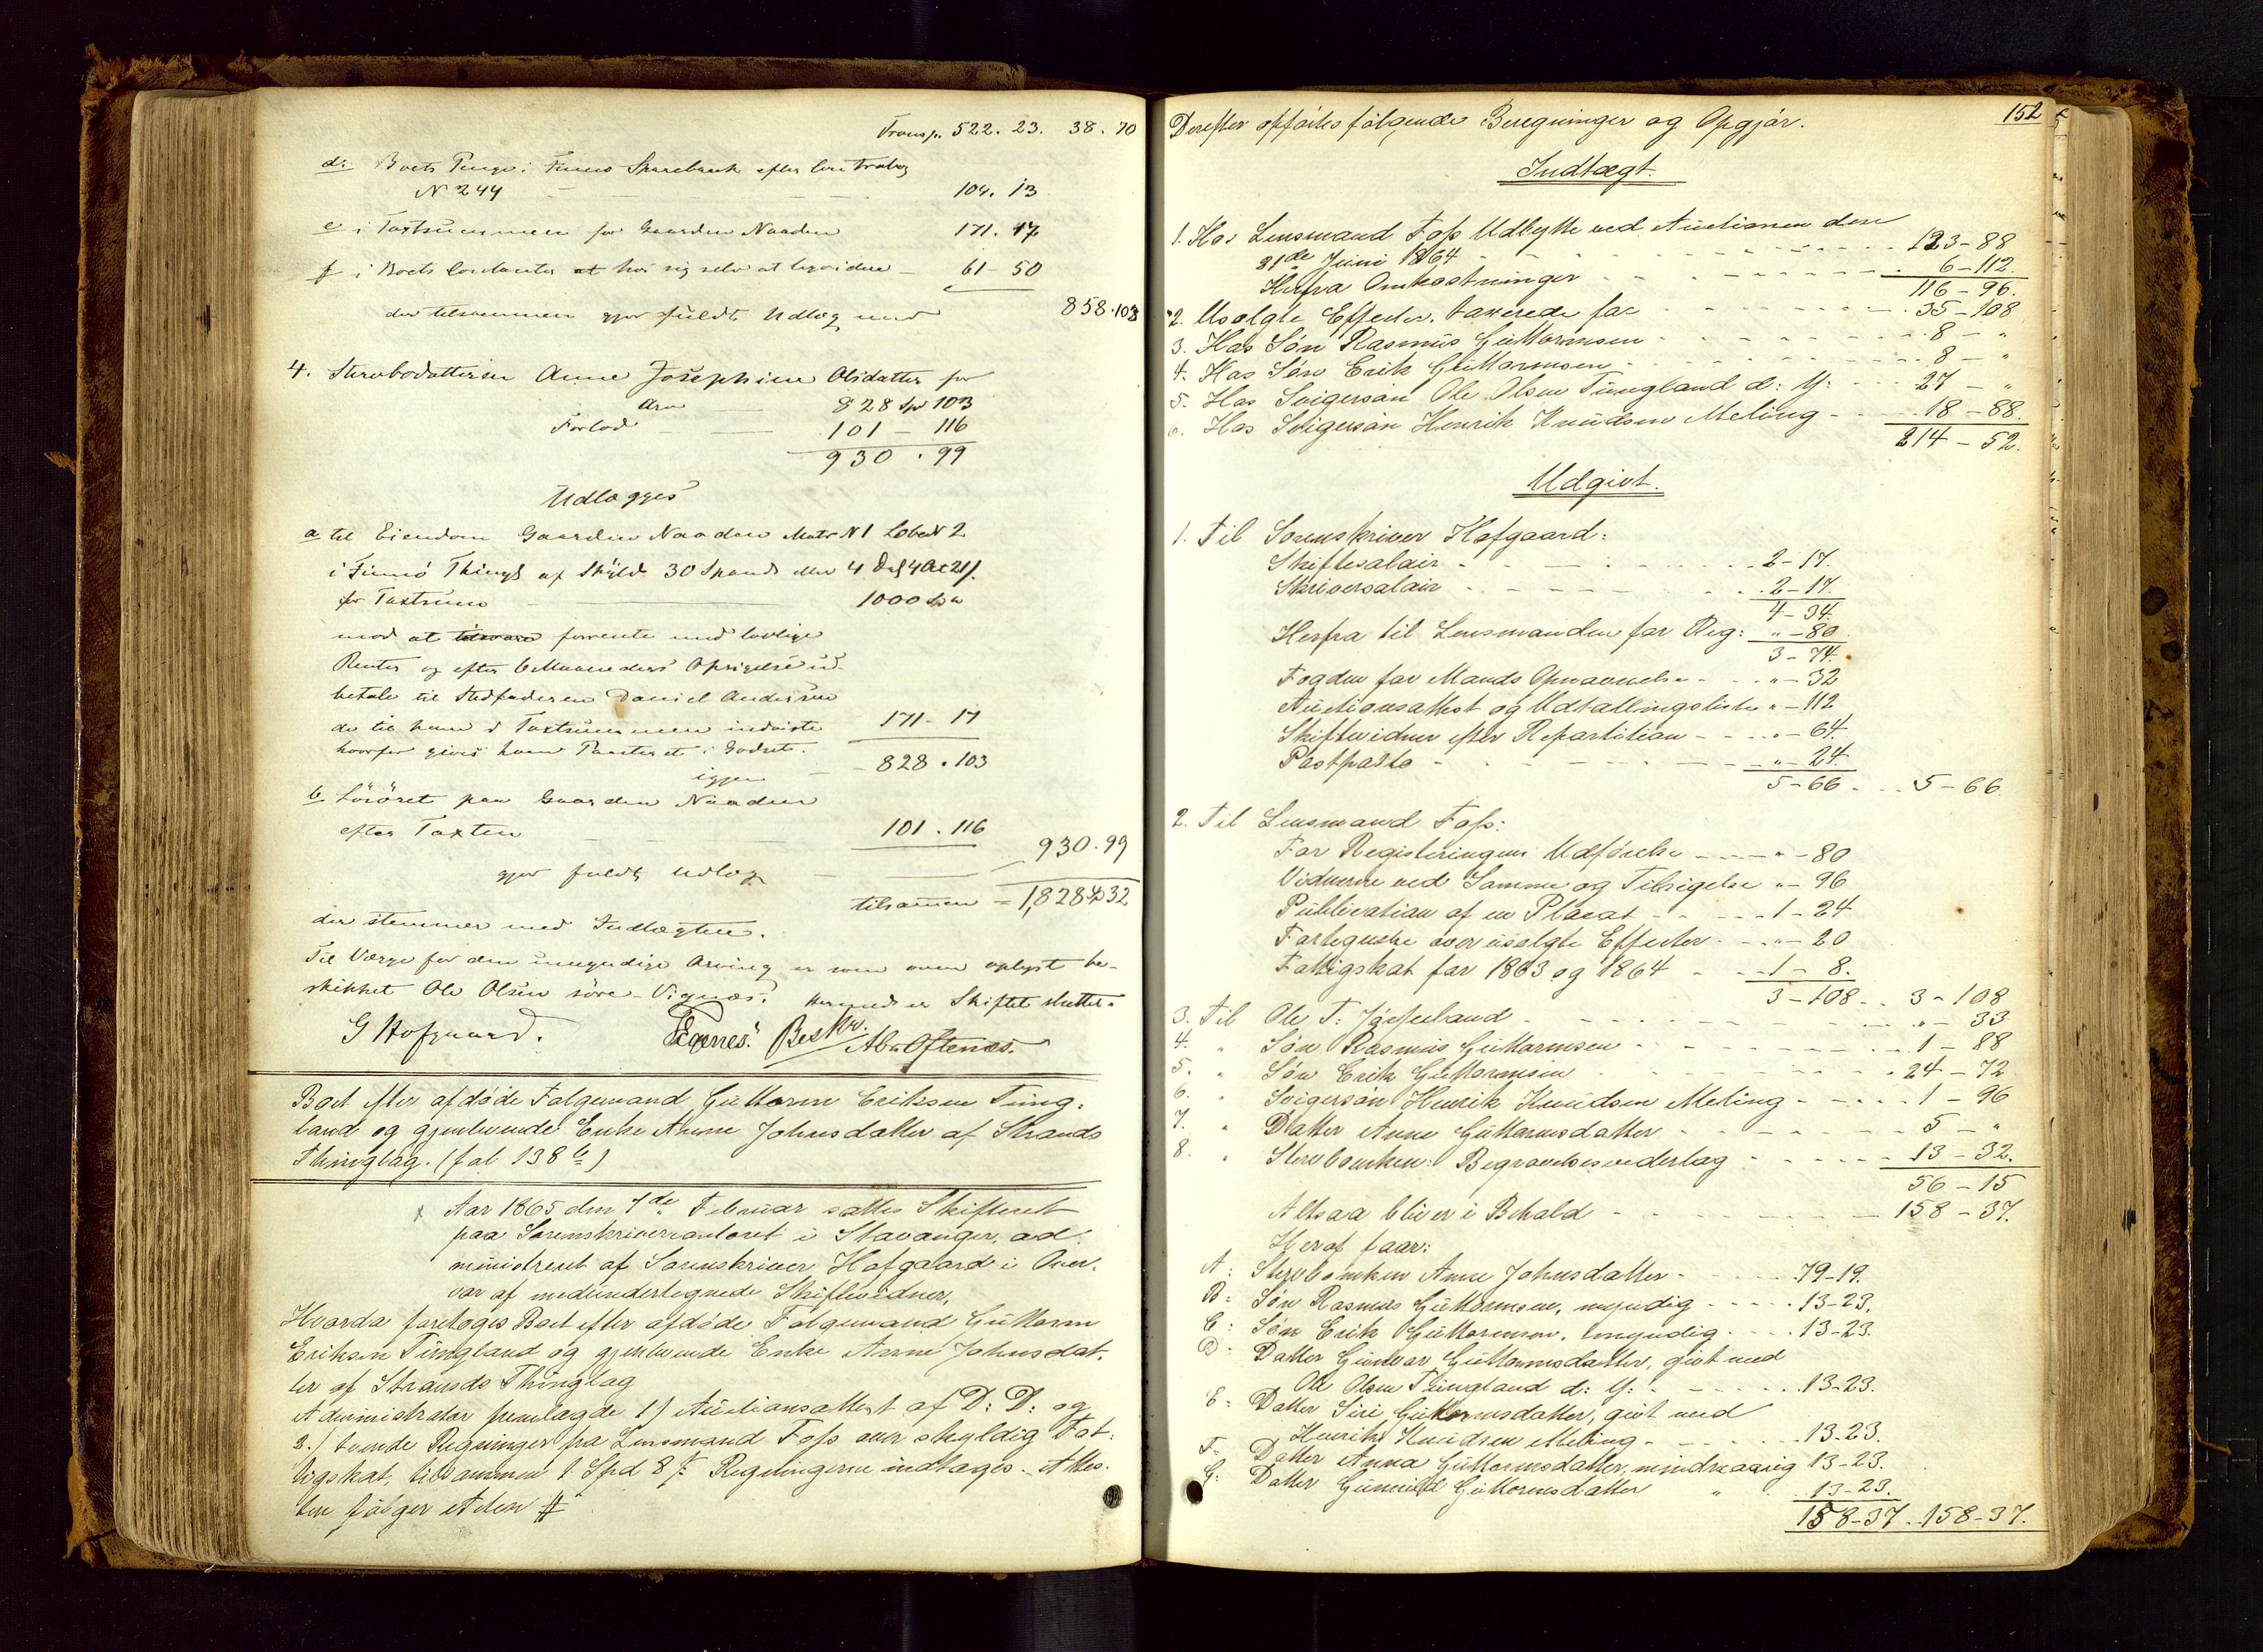 Transp. 522. 23. 38. 70
d: Boets Penge i Finnø Sparebank efter Contrabog
N 244 - 104. 13
e i Taxtsummen for Gaarden Naaden 171. 17
f i Boets Contanter at hos sig selv at 61 - 50
der tilsammen gjør fuldt Udlæg med 858.103
4. Sterbodatteren Anne Josephine Olsdatter for
Arv 828 Spd 103
Forlod 101 - 116
930 . 99
Udlægges
a til Eiendom Gaarden Naaden Matr N 1 Løbe N 2
i Finnø Thingl af Skyld 30 Spand eller 4 Dal 4 Ort 21 ß.
for Taxtsum 1000 Spd
mod at forrente med lovlige
Renter og efter 6 Maaneders Opsigelse ud-
betale til Stedfaderen Daniel Andersen
de til ham i Taxtsummen indviste 171 - 17
hvorfor gives ham Panteret i Godset.
igjen - 828 . 103
b Løsøret paa Gaarden Naaden
efter Taxten 101 . 116
gjør fuldt Udlæg 930.99
tilsammen = 1,828 32
der stemmer med Indtægten.
Til Værge for den umyndige Arving er som oven oplyst be-
skikket Ole Olsen søre Vignæs. Hermed er Skiftet sluttet.
G Hofgaard. Egenes. Besk. Oftenæs.
Boet efter afdøde Følgemand Guttorm Eriksen Tung-
land og gjenlevende Enke Anne Johnsdatter af Strands
Thinglag. (fol 138 b)
Aar 1865 den 7de Februar sattes Skifteret
paa Sorenskrivercontoret i Stavanger, ad-
ministreret af Sorenskriver Hofgaard i Over-
vær af medundertegnede Skiftevidner,
Hvorda foretoges Boet efter afdøde Følgemand Guttorm
Eriksen Tungland og gjenlevende Enke Anne Johnsdat-
ter af Strands Thinglag
Administrator fremlagde 1) Auctionsattest af D: D: og
2.) tvende Regninger fra Lensmand Foss over skyldig Fat-
tigskat, tilsammen 1 Spd 8 ß. Regningerne indtages. Attes-
ten følger Acten #
152
Derefter opførtes følgende Beregninger og Opgjør.
Indtægt.
1. Hos Lensmand Foss Udbytte ved Auctionen den
21de Juni 1864 - 123-88
Herfra Omkostninger - 6-112.
116-96.
2. Usolgte Effecter, taxerede for - 35-108
3. Hos Søn Rasmus Guttormsen - 8 - "
4. Hos Søn Erik Guttormsen - 8 - "
5. Hos Svigersøn Ole Olsen Tungland d: Y: - 27 - "
6. Hos Svigersøn Henrik Knudsen Meling - 18-88.
214-52.
Udgivt.
1. Til Sorenskriver Hofgaard:
Skiftesalair - 2-17.
Skriversalair - 2-17.
4-34.
Herfra til Lensmanden for Reg: "-80
3-74.
Fogden for Mands Opnævnelse - "-32
Auctionsattest og Udtallingsliste "-112
Skiftevidner efter Repartition - "-64.
Postporto - "-24.
5-66 - 5-66.
2. Til Lensmand Foss:
For Registeringens Udførelse - "-80
Vidnerne ved Samme og Tilsigelse "-96
Publication af en Placat - 1-24
Fortegnelse over usolgte Effecter - "-20
Fattigskat for 1863 og 1864 - 1-8.
3-108 - 3-108
3. Til Ole T: Jøsseland - "-33
4. " Søn Rasmus Guttormsen - 1-88
5. " Søn Erik Guttormsen - 24-72
6. " Svigersøn Henrik Knudsen Meling - 1-96
7. " Datter Anne Guttormsdatter - 5-"
8. " Sterboenken: Begravelsesvederlag - 13-32.
56-15
Altsaa bliver i Behold - 158-37.
Heraf faar:
A: Sterboenken Anne Johnsdatter - 79-19.
B: Søn Rasmus Guttormsen, myndig - 13-23.
C: Søn Erik Guttormsen, myndig - 13-23.
D: Datter Gunvor Guttormsdatter, givt med
Ole Olsen Tungland d: Y: - 13-23.
E: Datter Siri Guttormsdatter, givt med
Henrik Knudsen Meling - 13-23.
F: Datter Anna Guttormsdatter, mindreaarig 13-23.
G: Datter Gunnild Guttormsdatter " 13-23.
158-37. 158-37.